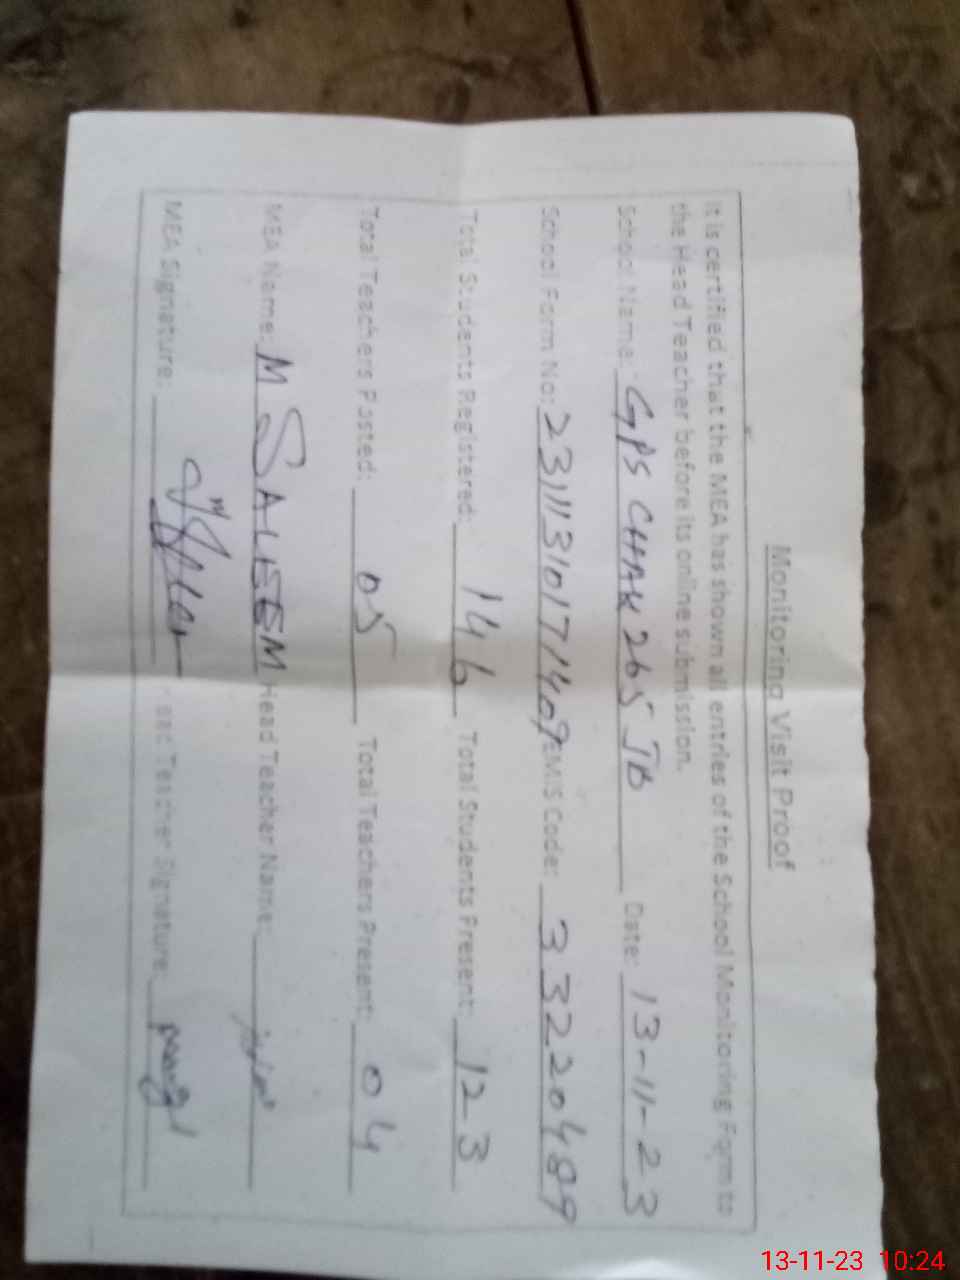 Monitoring Visit Proof
It is certified that the MEA has shown all entries of the School Monitoring Form to
the Head Teacher before its online submission.
School Name: GPS CHAK 265 JB Date: 13-11-23
School Form No: 23111310171409 EMIS Code: 33220489
Total Students Registered: 146 Total Students Present: 123
Total Teachers Posted: 05 Total Teachers Present: 04
MEA Name: M SALEEM Head Teacher Name:
MEA Signature: Head Teacher Signature:
13-11-23 10:24